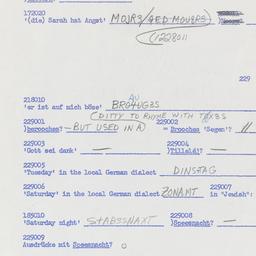 172020
'(die) Sarah hat Angst' MOJRS/
(1228011
229
218010
'er ist auf mich böse' BROUGZS
(DITTY TO RHYME WITH
229001 229002
)berooches? - BUT USED IN A) = Brooches 'Segen'? //
229003 229004
'Gott sei dank' — )Tilleld!? —
229005
'Tuesday' in the local German dialect DINSTAG
229006 229007
'Saturday' in the local German dialect ZONAMT in "Jewish":
185010 229008
'Saturday night' STABSSNAXT )Speesnacht? —
229009
Ausdrücke mit Speesnacht? O